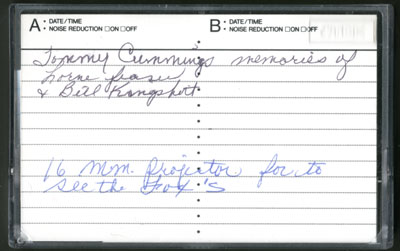 A • DATE/TIME
• NOISE REDUCTION □ ON □ OFF
B • DATE/TIME
• NOISE REDUCTION □ ON □ OFF
Tommy Cummings memories of
Lorne Fraser
& Bill Kongshott
16 M.M. Projector for to
see the Fox's